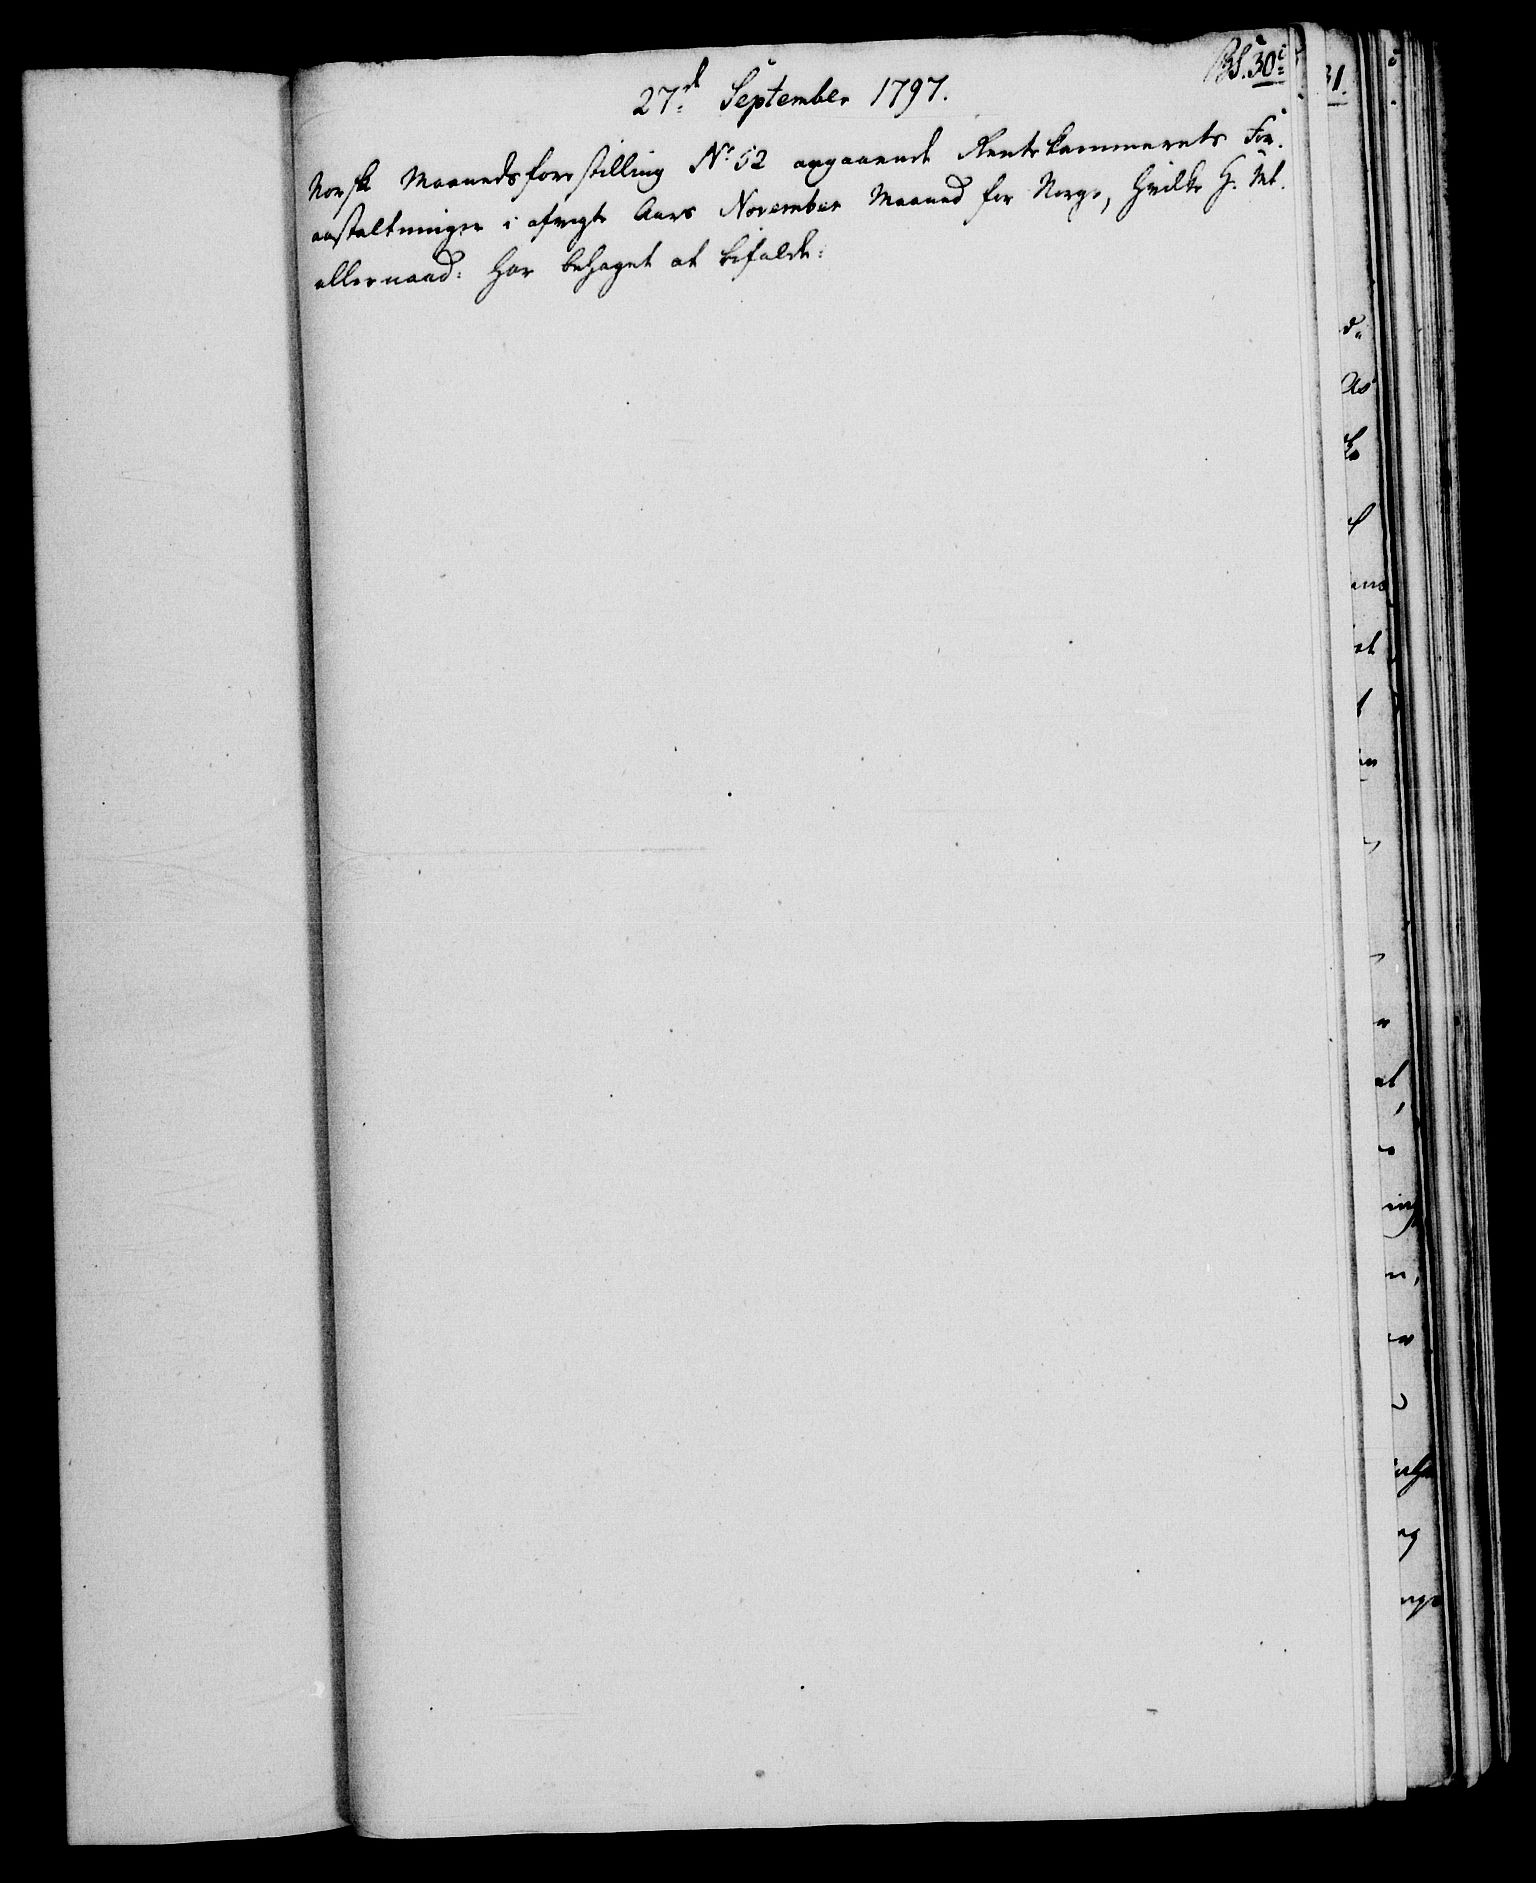 Bl. 30
27d September 1797.
Norsk Maanedsforestilling No 52 angaaende Rentekammerets For-
anstaltninger i afvigte Aars November Maaned for Norge, hvilke H. Mt.
allernaad: har behaget at bifalde:
31.